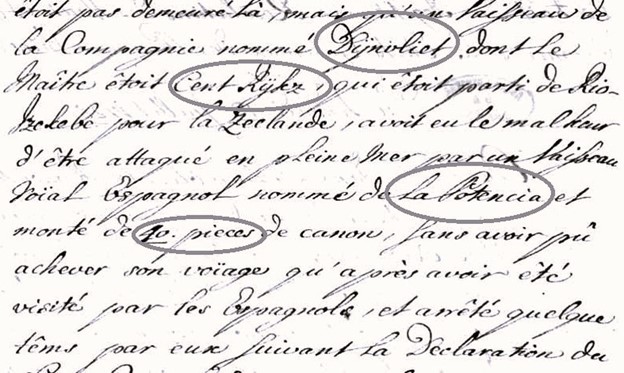 étoit pas demeuré là, mais qu'un Vaisseau de
la Compagnie nommé Dijnvliet dont le
Maître étoit Cent Rijkz, qui étoit parti de Rio-
Izekebe pour la Zeelande, avoit eu le malheur
d'être attaqué en pleine Mer par un Vaisseau
Roïal Espagnol nommé de la Potencia et
monté de 40. pieces de canon, sans avoir pû
achever son voïage qu'après avoir été
visité par les Espagnols, et arrêté quelque
têms par eux suivant la Déclaration du